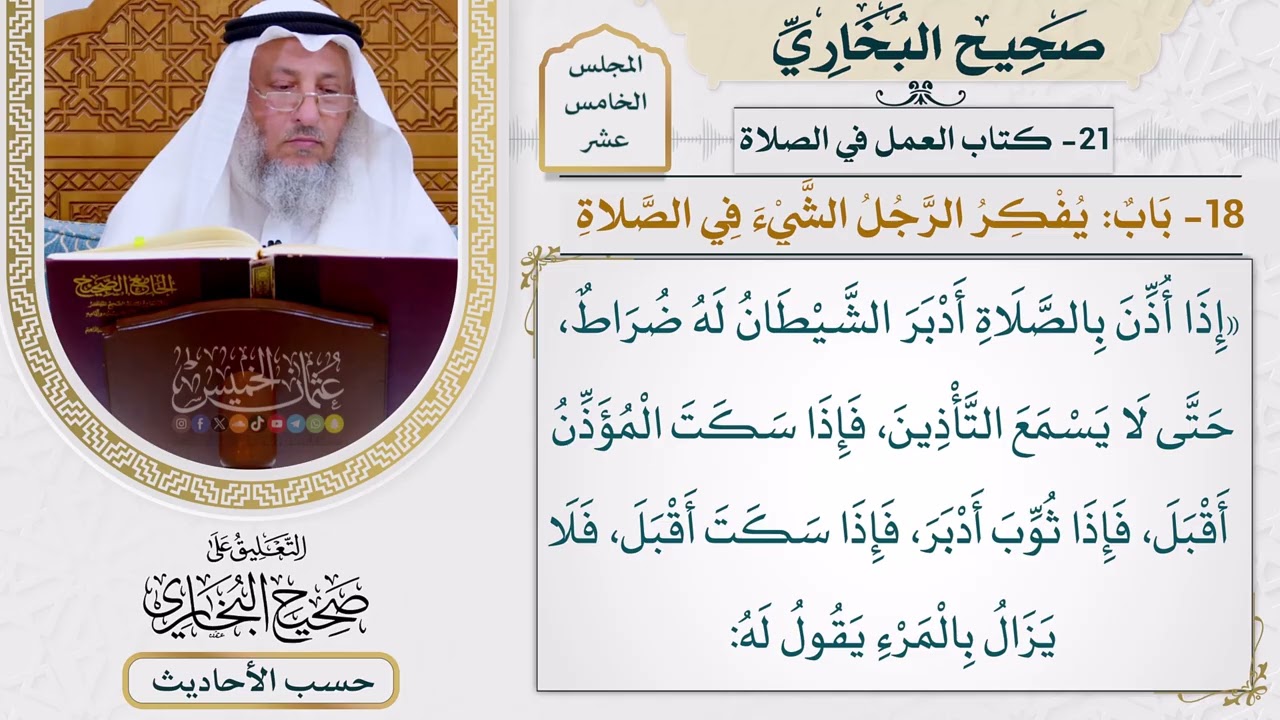 صَحِيح البُخَارِيِّ
المجلس
الخامس
عشر
21- كتاب العمل في الصلاة
18- بَابٌ: يُفْكِرُ الرَّجُلُ الشَّيْءَ فِي الصَّلاةِ
«إِذَا أُذِّنَ بِالصَّلَاةِ أَدْبَرَ الشَّيْطَانُ لَهُ ضُرَاطٌ،
حَتَّى لَا يَسْمَعَ التَّأْذِينَ، فَإِذَا سَكَتَ الْمُؤَذِّنُ
أَقْبَلَ، فَإِذَا ثُوِّبَ أَدْبَرَ، فَإِذَا سَكَتَ أَقْبَلَ، فَلَا
يَزَالُ بِالْمَرْءِ يَقُولُ لَهُ:
الجامع الصحيح
عُثمان الخميس
التَّعْلِيقُ عَلَى
صَحِيح البُخَارِي
حسب الأحاديث